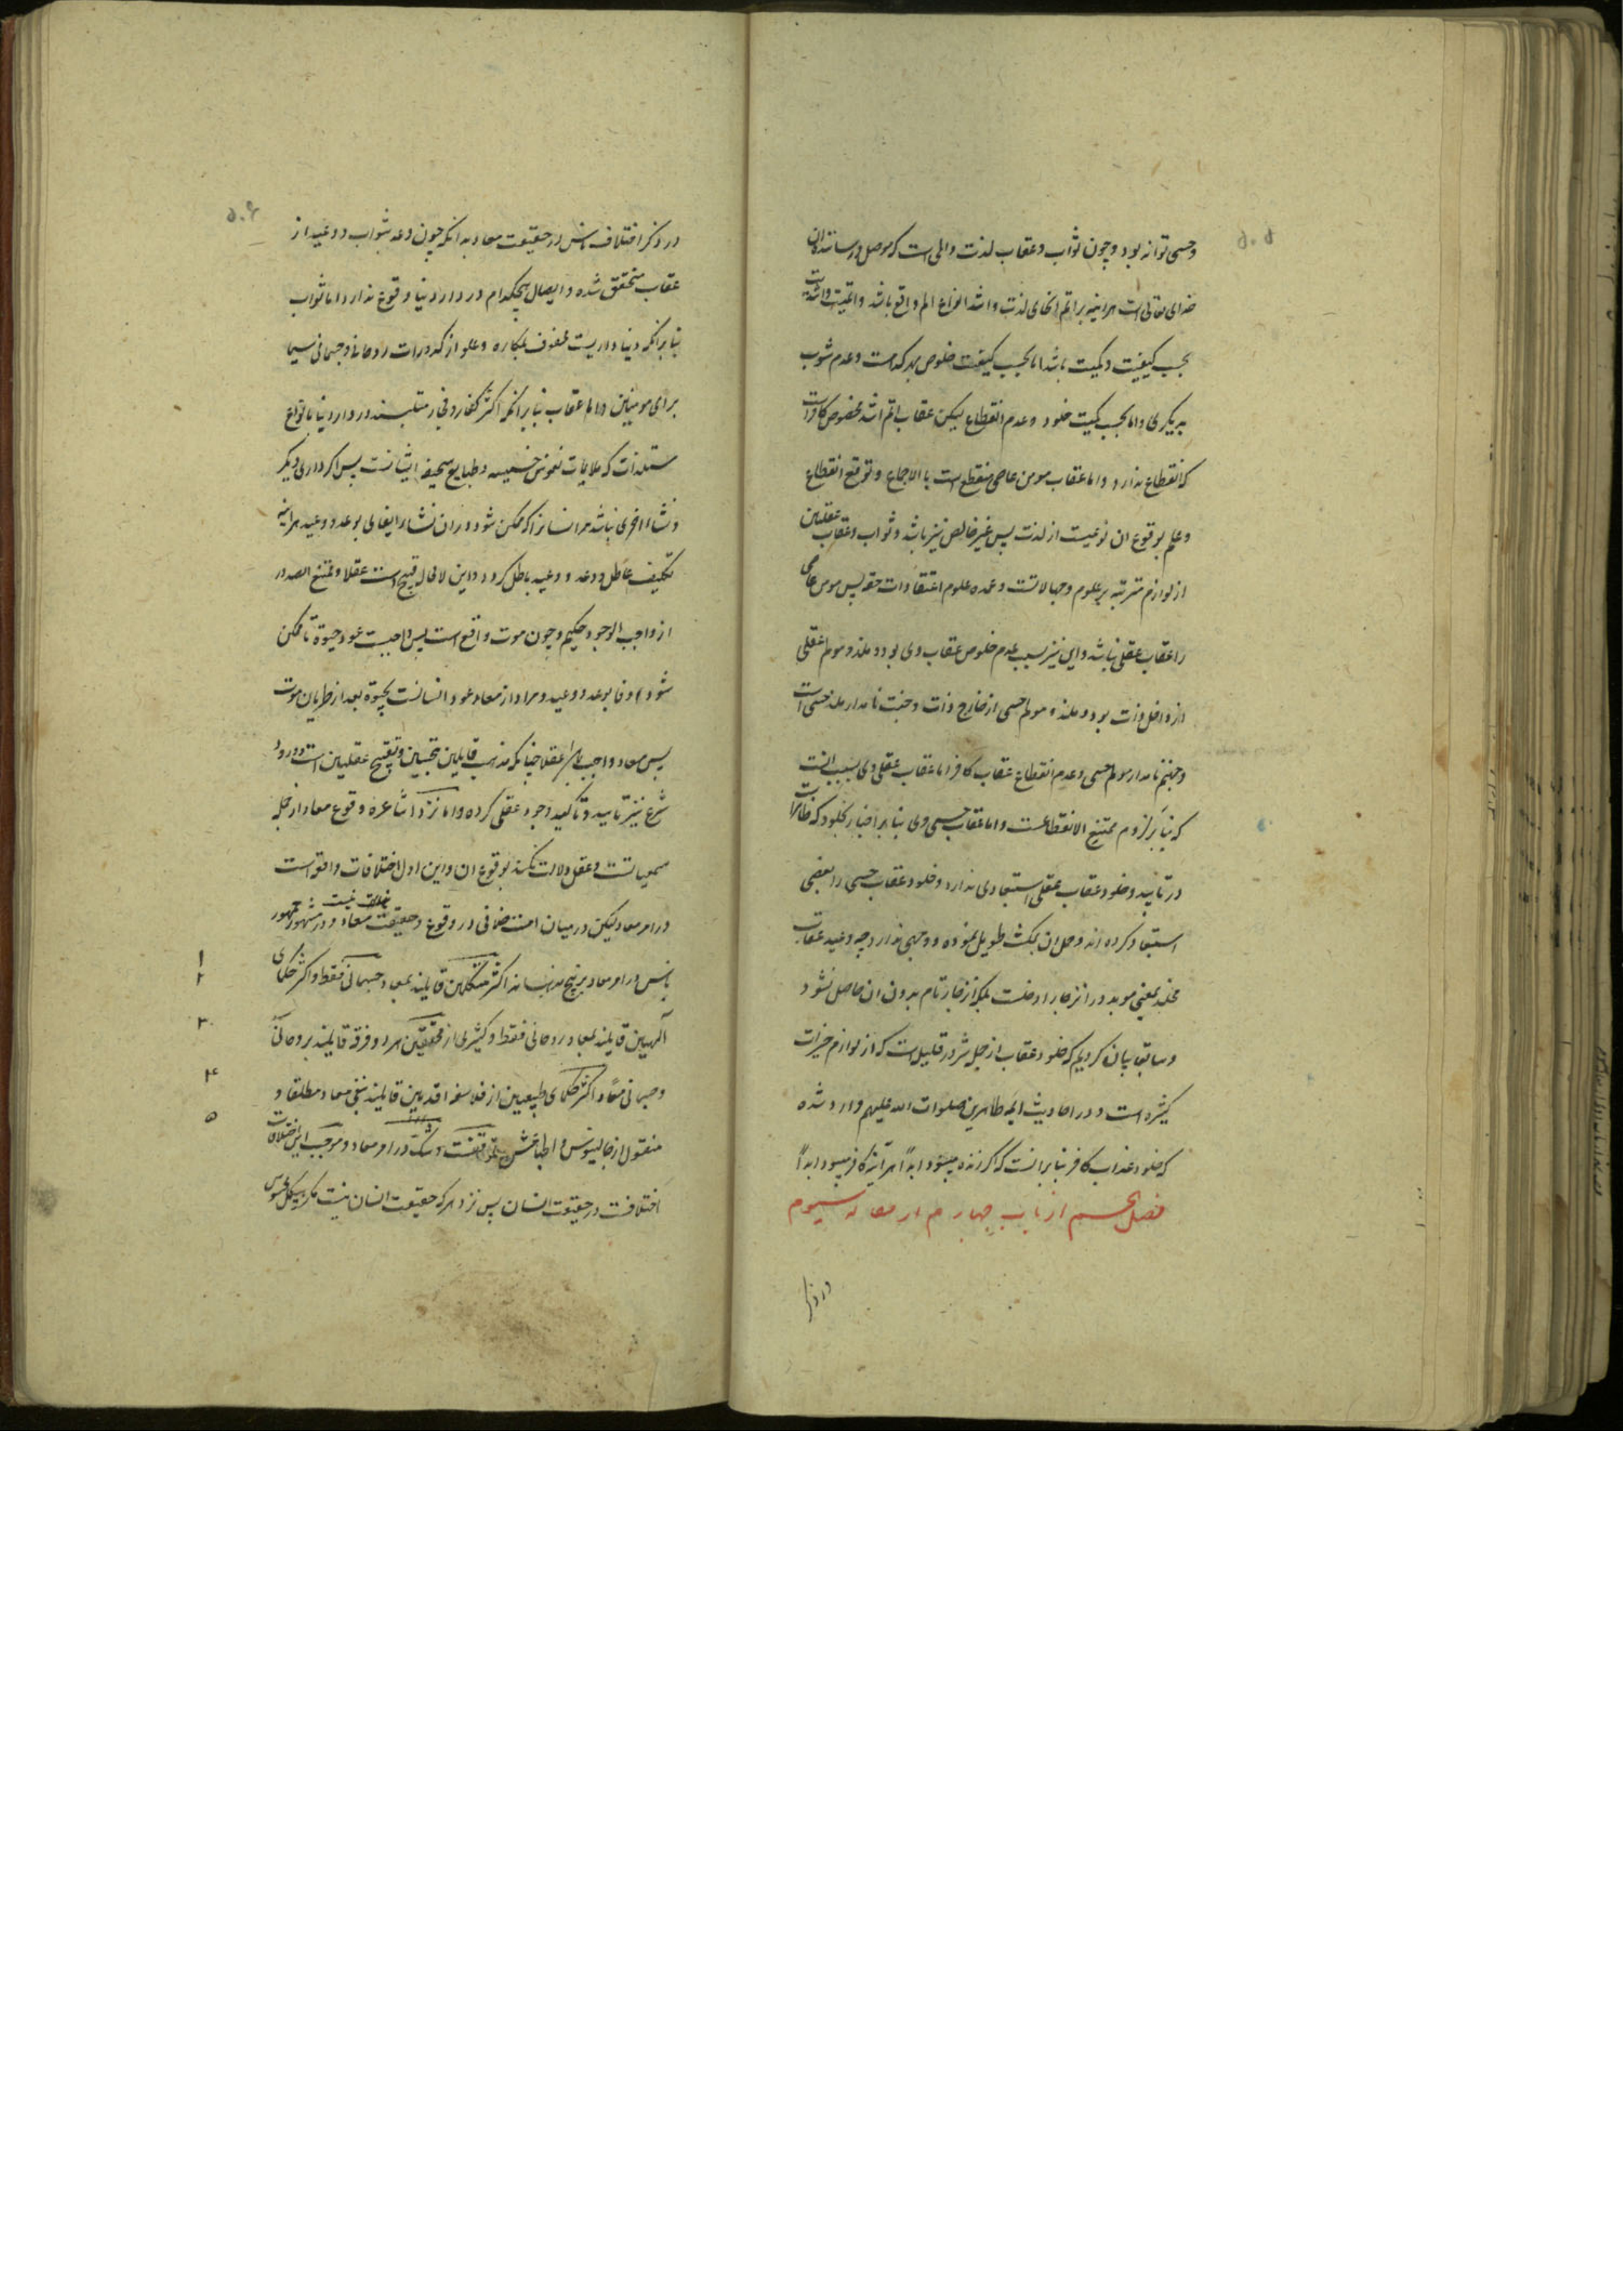 ۵۰۵
وحسی تواند بود و چون ثواب و عقاب لذت و المی است که موصل و رساننده ان
خدای تعالی است هراینه بر اتم انحای لذت و اشد انواع الم واقع باشد و اتمیت و اشدیت
بحسب کیفیت و کمیت باشد اما بحسب کیفیت خلوص هر کدامست و عدم شوب
بدیگری و اما بحسب کمیت خلود و عدم انقطاع لیکن عقاب اتم اشد مخصوص کافر است
که انقطاع ندارد و اما عقاب مومن عاصی منقطع است بالاجماع و توقع انقطاع
و علم بوقوع ان نوعیست از لذت پس غیر خالص نیز باشد و ثواب و عقاب عقلیین
از لوازم مترتبه بر علوم و جهالاتست و عمده علوم اعتقادات حقه پس مومن عاصی
را عقاب عقلی نباشد و این نیز سبب عدم خلوص عقاب وی بود و ملذ و مولم عقلی
از داخل ذات بود و ملذ و مولم حسی از خارج ذات و جنت نامدار ملذ حسی است
و جهنم نامدار مولم حسی و عدم انقطاع عقاب کافر اما عقاب عقلی وی بسبب انست
که بنا بر لزوم ممتنع الانقطاعست و اما عقاب حسی وی بنا بر اخبار بخلود که ظاهر است
در تابید و خلود عقاب عقلی استبعادی ندارد و خلود عقاب حسی را بعضی
استبعاد کرده اند و حل ان بحث طویل نموده و وجهی ندارد چه وعید عقاب
مخلد بمعنی موبد در انزجار ادخلست بلکه انزجار تام بدون ان حاصل نشود
و سابقا بیان کردیم که خلود عقاب از جمله شرور قلیل است که از لوازم خیرات
کثیره است و در احادیث ایمه طاهرین صلوات الله علیهم وارد شده
که خلود عذاب کافر بنا برانست که اگر زنده میبود ابداً هرآینه کافر میبود ابداً
فصل از باب چهارم از مقاله سیوم
در ذکر
۵۰۶
در ذکر اختلاف ناس در حقیقت معاد بدانکه چون وعد بثواب و وعید از
عقاب متحقق شده و ایصال هیچکدام در دار دنیا وقوع ندارد اما ثواب
بنا برانکه دنیا داریست محفوف بمکاره و مملو از کدورات روحانی و جسمانی سیما
برای مومنین و اما عقاب بنا برانکه اکثر کفار و فجار متلبسند در دار دنیا بانواع
مستلذات که ملایمات نفوس خسیسه و طبایع سخیفه ایشانست پس اگر داری دیگر
و نشاء اخری نباشد مر انسانرا که ممکن شود در ان نشاء ایفای بوعد و وعید هراینه
تکلیف عاطل و وعد و وعید باطل گردد و این لامحاله قبیح است عقلا و ممتنع الصدور
از واجب الوجود حکیم و چون موت واقع است پس واجبست عود حیوة تا ممکن
شود وفا بوعد و وعید و مراد از معاد عود انسانست بحیوة بعد از طریان موت
پس معاد واجب باشد عقلا چنانکه مذهب قایلین بتحسین و تقبیح عقلیین است و ورود
شرع نیز تایید و تاکید وجوب عقلی کرده و اما نزد اشاعره وقوع معاد از جمله
سمعیاتست و عقل دلالت نکند بوقوع ان و این اول اختلافات واقع است
در امر معاد لیکن در میان امت خلافی در وقوع و حقیقت معاد خلاف نیست و در مشهور جمهور
ناس در امر معاد بر پنج مذهبند اکثر متکلمین قایلند بمعاد جسمانی فقط و اکثر حکمای
۱
۲
آلهیین قایلند بمعاد روحانی فقط و کثیری از محققین هر دو فرقه قایلند بروحانی
۳
و جسمانی معاً و اکثر حکمای طبیعیین از فلاسفه اقدمین قایلند بنفی معاد مطلقا و
۴
منقول از جالینوس و اطباعش توقفست و شک در امر معاد و موجب این اختلافات
۵
اختلافست در حقیقت انسان پس نزد هر که حقیقت انسان نیست مگر هیکل محسوس